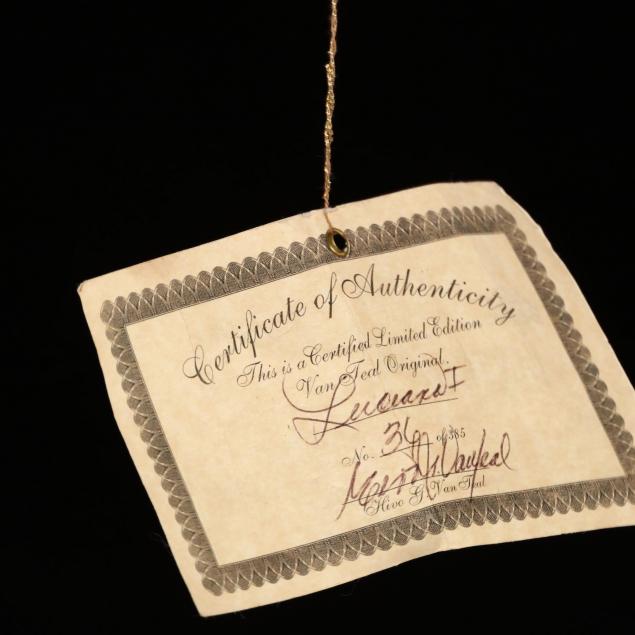 Certificate of Authenticity
This is a Certified Limited Edition
Van Teal Original.
Luciana I
No. 36 of 385
Hivo G. Van Teal